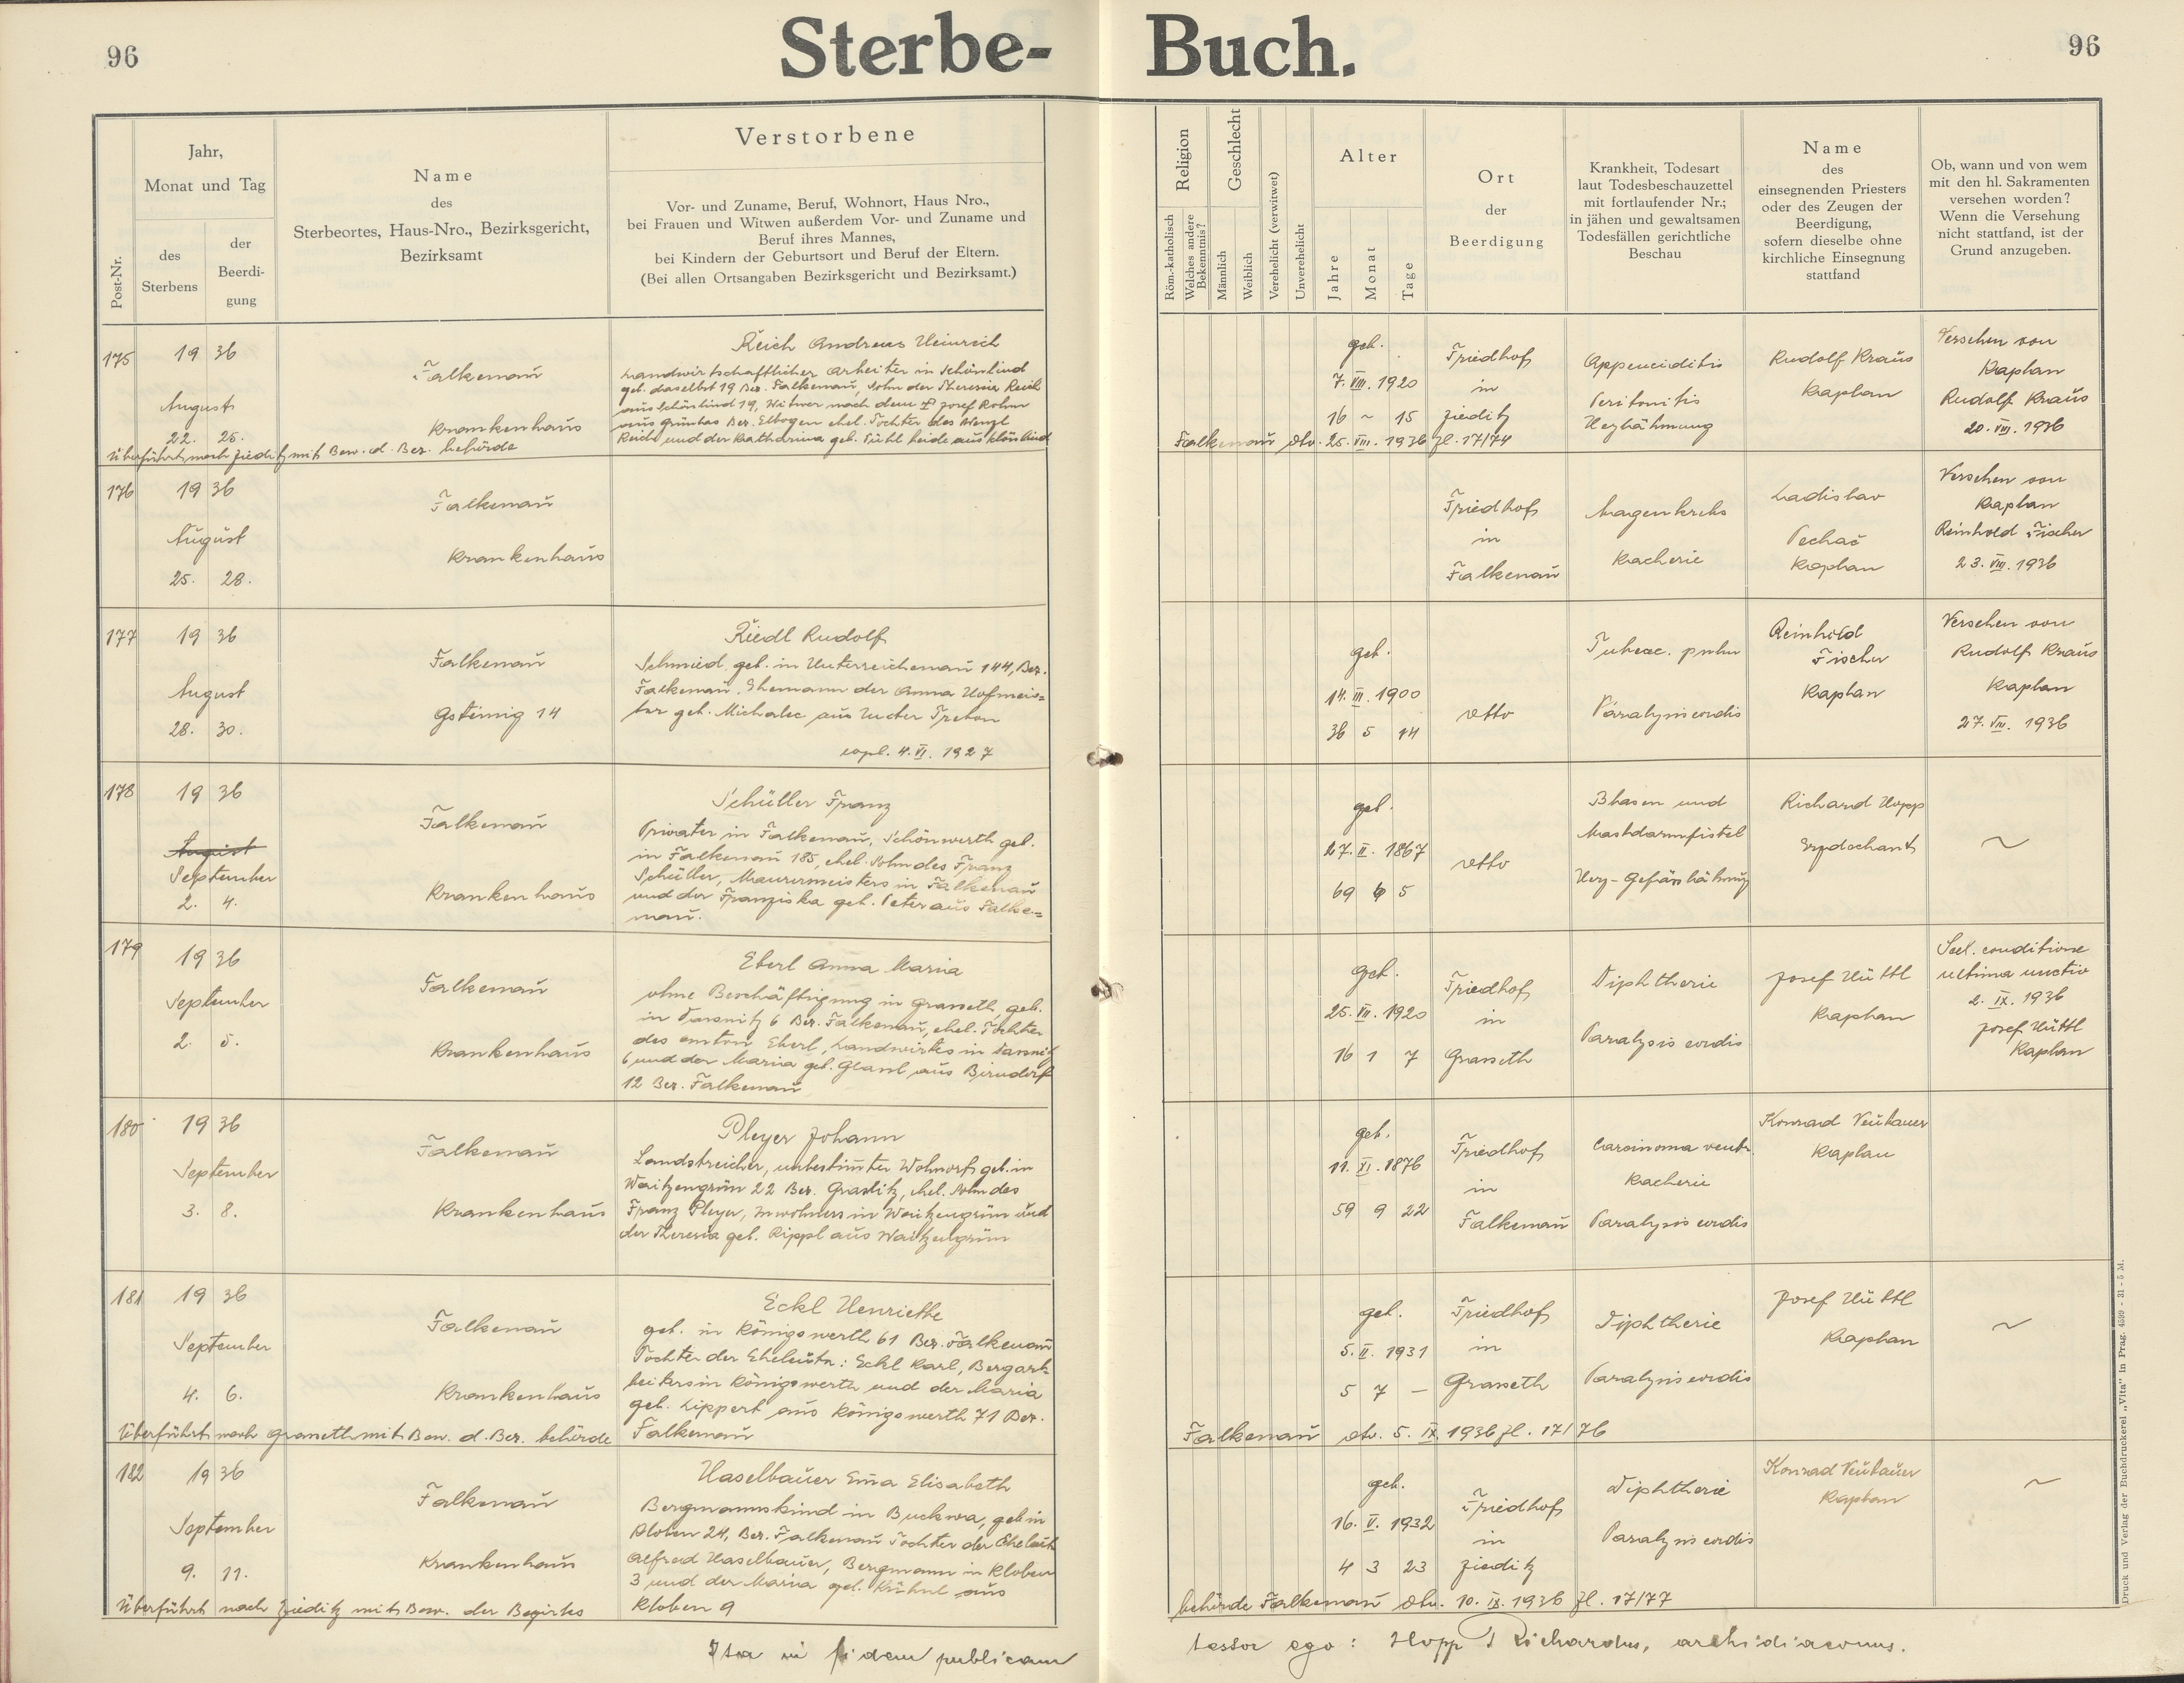 96
Sterbe- Buch.
96
Post-Nr.
Jahr,
Monat und Tag
des
Sterbens
der
Beerdi-
gung
Name
des
Sterbeortes, Haus-Nro., Bezirksgericht,
Bezirksamt
Verstorbene
Vor- und Zuname, Beruf, Wohnort, Haus Nro.,
bei Frauen und Witwen außerdem Vor- und Zuname und
Beruf ihres Mannes,
bei Kindern der Geburtsort und Beruf der Eltern.
(Bei allen Ortsangaben Bezirksgericht und Bezirksamt.)
Religion
Röm.-katholisch
Welches andere
Bekenntnis?
Geschlecht
Männlich
Weiblich
Verehelicht (verwitwet)
Unverehelicht
Alter
Jahre
Monat
Tage
Ort
der
Beerdigung
Krankheit, Todesart
laut Todesbeschauzettel
mit fortlaufender Nr.;
in jähen und gewaltsamen
Todesfällen gerichtliche
Beschau
Name
des
einsegnenden Priesters
oder des Zeugen der
Beerdigung,
sofern dieselbe ohne
kirchliche Einsegnung
stattfand
Ob, wann und von wem
mit den hl. Sakramenten
versehen worden?
Wenn die Versehung
nicht stattfand, ist der
Grund anzugeben.
175
19 36
August
22. 25.
Falkenau
Krankenhaus
Reich Andreas Heinrich
Landwirtschaftlicher Arbeiter in Schönlind
geb. daselbst 19 Bez. Falkenau, Sohn der Theresia Reich
aus Schönlind 19, Witwer nach dem Josef Rohm
aus Grünlas Bez. Elbogen ehel. Tochter des Wenzl
Reichl und der Katharina geb. beide aus Schönlind
Überführt nach Zieditz mit Bew. d. Bez. behörde
geb.
7. VIII. 1920
16 ~ 15
Friedhof
in
Zieditz
Appendiditis
Peritonitis
Herzlähmung
Rudolf Kraus
Kaplan
Versehen von
Kaplan
Rudolf Kraus
20. VIII. 1936
Falkenau dto. 25. VIII. 1936 Zl. 17/74
176
19 36
August
25. 28.
Falkenau
Krankenhaus
Friedhof
in
Falkenau
Magenkrebs
Kacherie
Ladislav
Pechač
Kaplan
Versehen von
Kaplan
Reinhold Fischer
23. VIII. 1936
177
19 36
August
28. 30.
Falkenau
Gsteinig 14
Riedl Rudolf
Schmied, geb. in Unterreichenau 144, Bez.
Falkenau. Ehemann der Anna Hofmeis=
ter geb. Michalec aus
copl. 4. VI. 1927
geb.
14. III. 1900
36 5 14
detto
Tuberc. pulm
Paralysis cordis
Reinhold
Fischer
Kaplan
Versehen von
Rudolf Kraus
Kaplan
27. VIII. 1936
178
19 36
August
September
2. 4.
Falkenau
Krankenhaus
Schüller Franz
Privater in Falkenau, Schönwerth geb.
in Falkenau 185, ehel. Sohn des Franz
Schüller, Maurermeisters in Falkenau
und der Franziska geb. Peter aus Falke=
nau.
geb.
27. II. 1867
69 6 5
detto
Blasen und
Mastdarmfistel
Herz-Gefässlähmung
Richard Hopp
Erzdechant
~
179
19 36
September
2. 5.
Falkenau
Krankenhaus
Eberl Anna Maria
ohne Beschäftigung in Grasseth, geb.
in 6 Bez. Falkenau, ehel. Tochter
des Anton Eberl, Landwirtes in
6 und der Maria geb. Glassl, aus Birndorf
12 Bez. Falkenau
geb.
25. VII. 1920
16 1 7
Friedhof
in
Grasseth
Diphtherie
Paralysis cordis
Josef Hüttl
Kaplan
Sub. conditione
ultima unctio
2. IX. 1936
Josef Hüttl
Kaplan
180
19 36
September
3. 8.
Falkenau
Krankenhaus
Pleyer Johann
Landstreicher, unbestim̅ter Wohnort geb. in
Waitzengrün 22 Bez. Graslitz, ehel. Sohn des
Franz Pleyer, Inwohners in Waitzengrün und
der Theresia geb. Rippl aus Waitzengrün
geb.
11. XI. 1876
59 9 22
Friedhof
in
Falkenau
Carcinoma ventr.
Kacherie
Paralysis cordis
Konrad Neubauer
Kaplan
181
19 36
September
4. 6.
Falkenau
Krankenhaus
Eckl Henriette
geb. in Königswerth 61 Bez. Falkenau
Tochter der Eheleute: Eckl Karl, Bergar-
beiters in Königswerth und der Maria
geb. Lippert aus Königswerth 71 Bez.
Falkenau
Überführt nach Grasseth mit Bew. d. Bez. behörde
geb.
5. II. 1931
5 7 —
Friedhof
in
Grasseth
Diphtherie
Paralysis cordis
Josef Hüttl
Kaplan
~
Falkenau dto. 5. IX. 1936 Zl. 17/76
182
19 36
September
9. 11.
Falkenau
Krankenhaus
Haselbauer Em̅a Elisabeth
Bergmannskind in Buckwa, geb in
Kloben 24, Bez. Falkenau Tochter der Eheleute
Alfred Haselbauer, Bergmann in Kloben
3 und der Maria geb. Kühnl aus
Kloben 9
Überführt nach Zieditz mit Bew. der Bezirks
geb.
16. V. 1932
4 3 23
Friedhof
in
Zieditz
Diphtherie
Paralysis cordis
Konrad Neubauer
Kaplan
~
behörde Falkenau dto. 10. IX. 1936 Zl. 17/77
Ita in fidem publicam
testor ego: Hopp Richardus, archidiaconus.
Druck und Verlag der Buchdruckerei „Vita" in Prag. 4599 - 31 - 5 M.